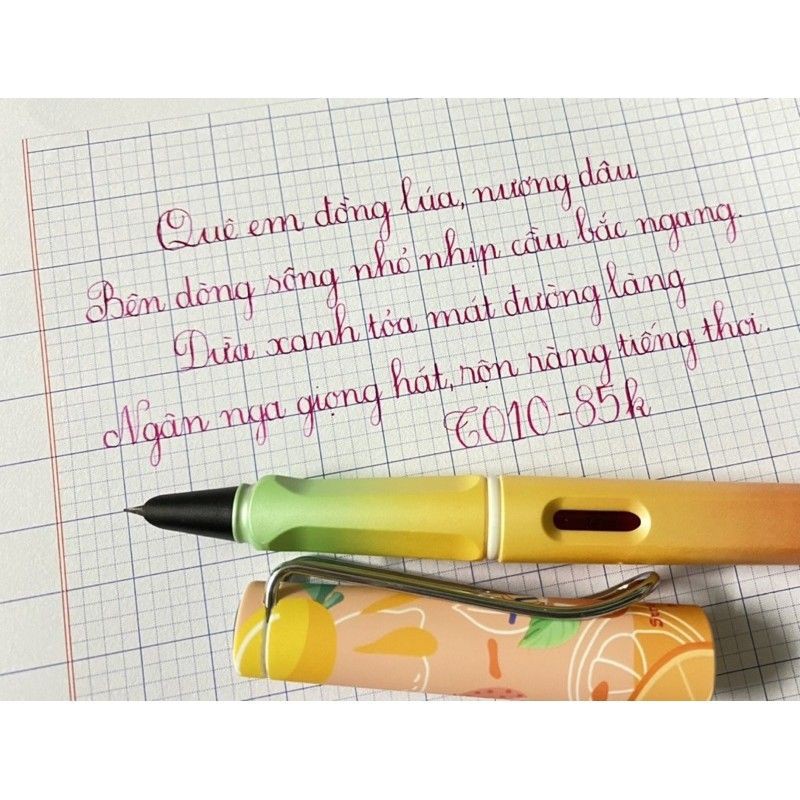 Quê em đồng lúa, nương dâu
Bên dòng sông nhỏ nhịp cầu bắc ngang.
Dừa xanh tỏa mát đường làng
Ngân nga giọng hát, rộn ràng tiếng thơi.
T010-85k